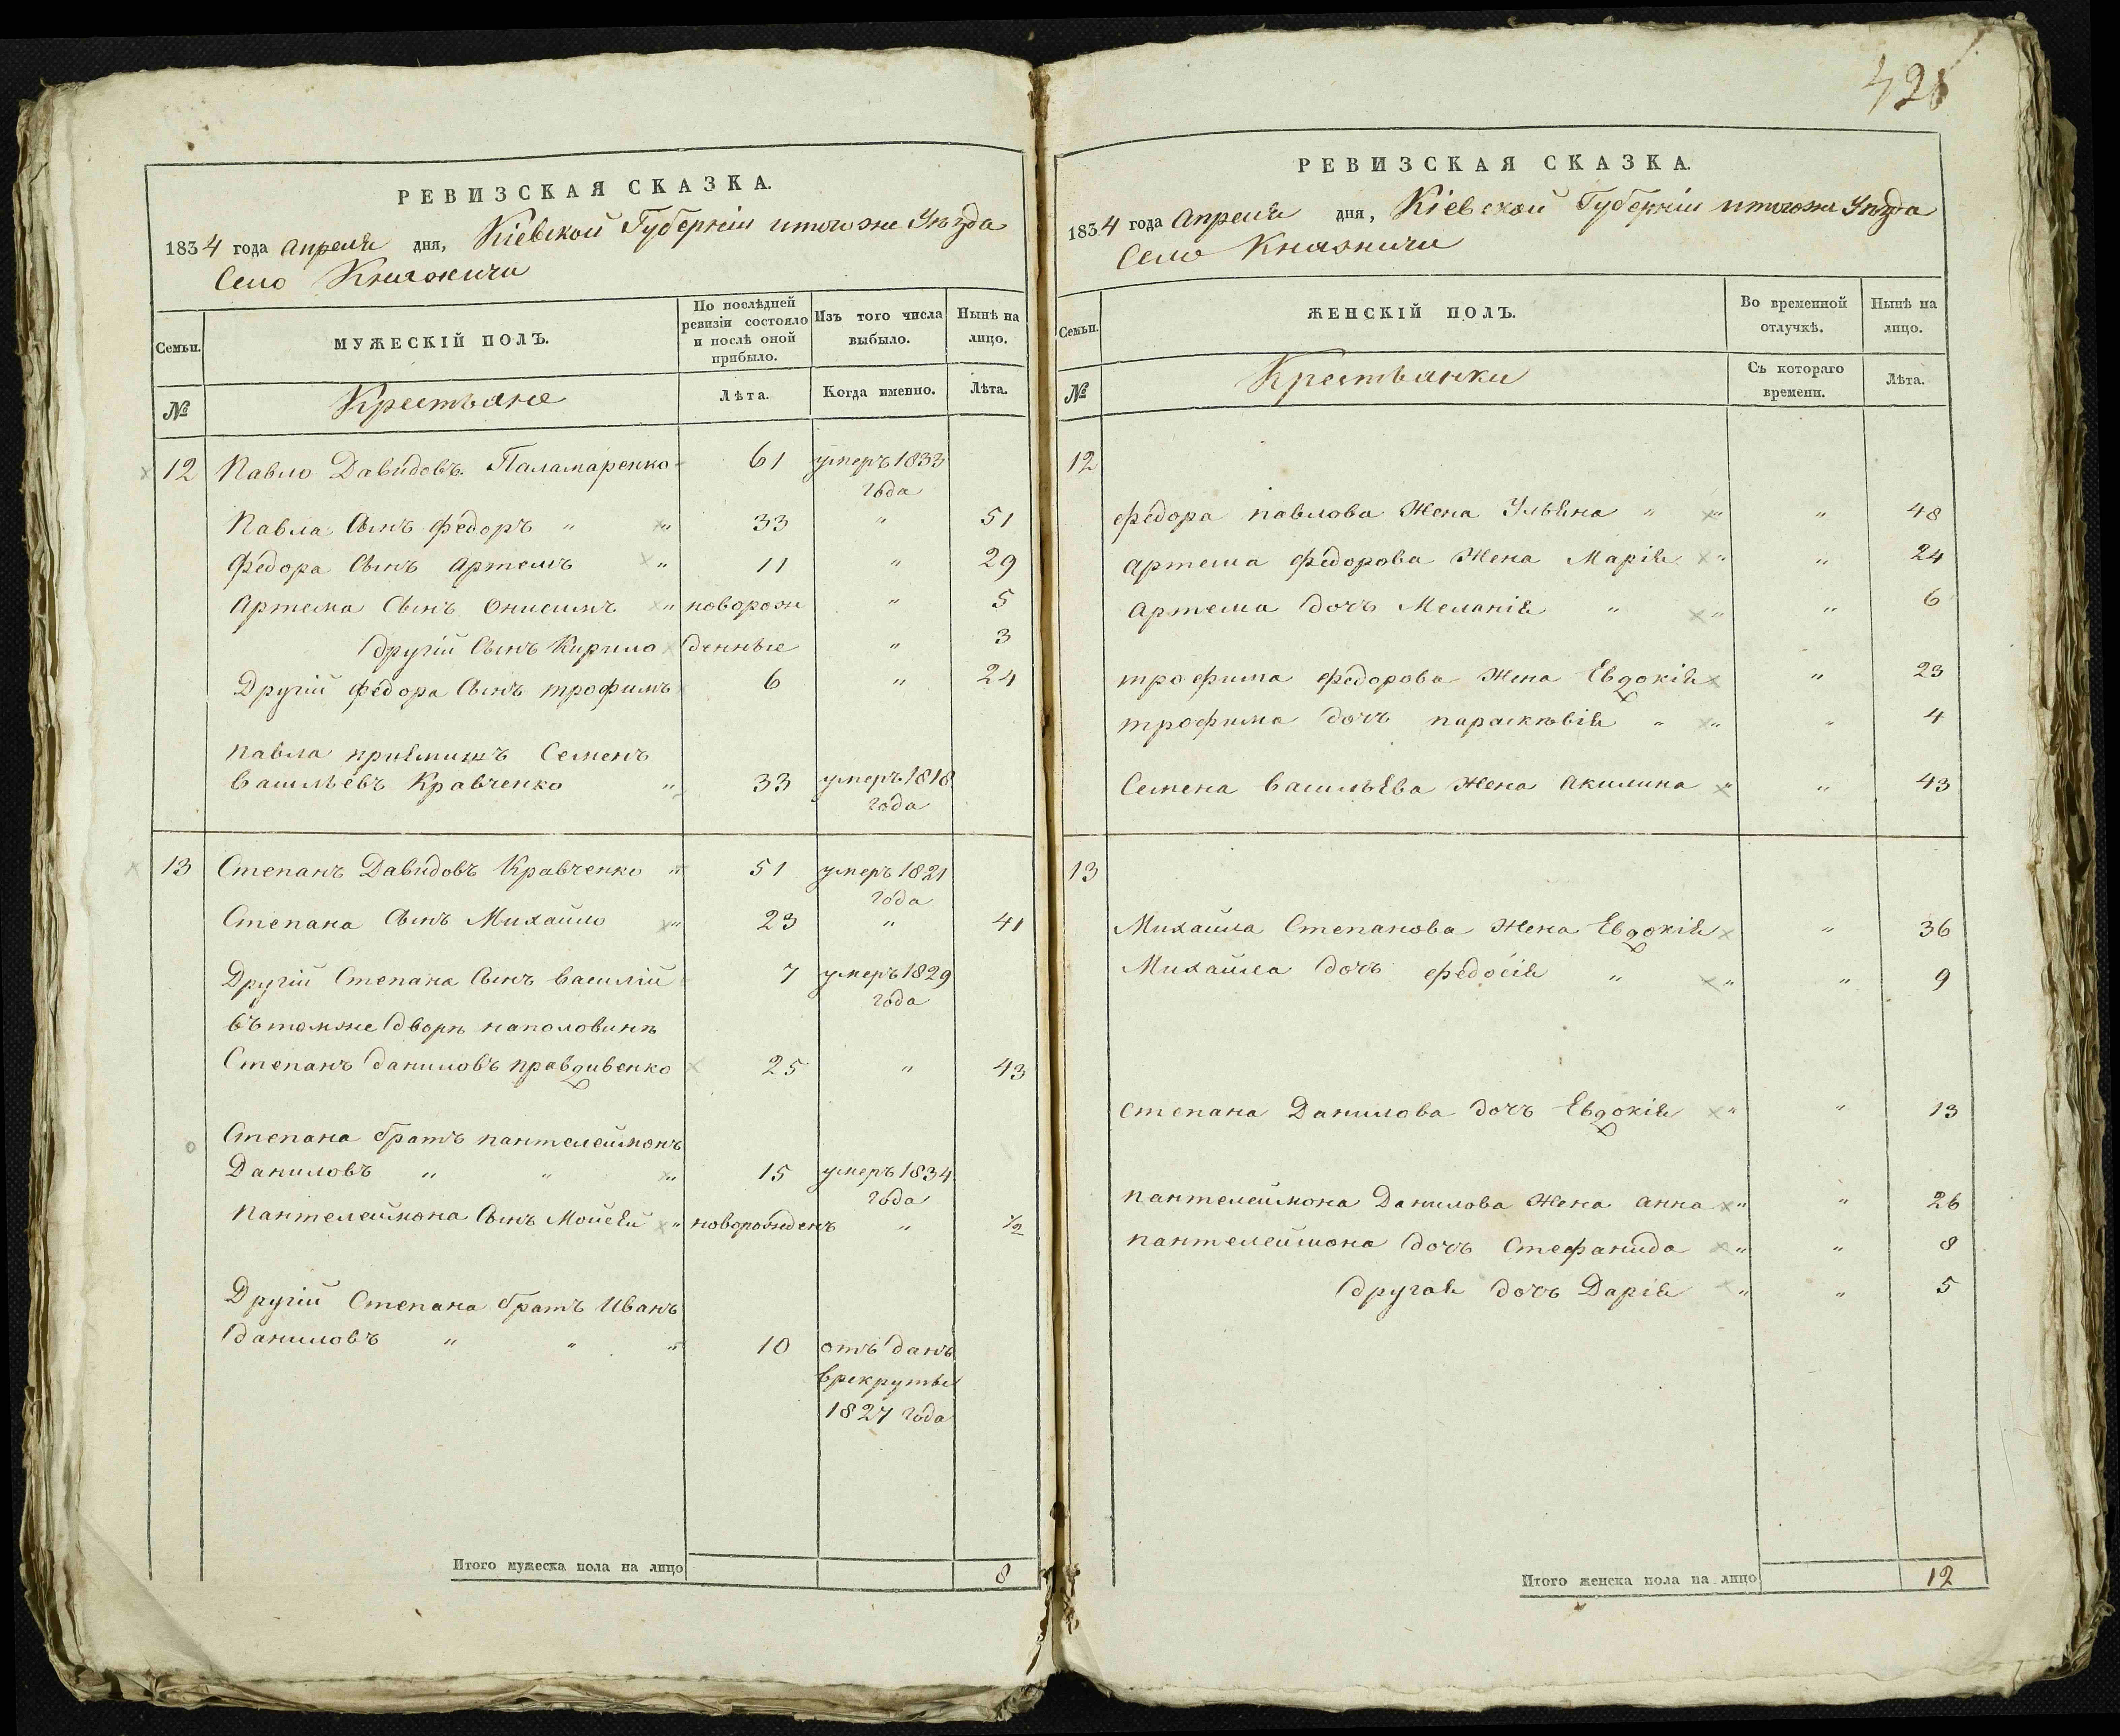 421
РЕВИЗСКАЯ СКАЗКА.
1834 года Апреля дня, Кіевской Губерніи итогоже Уѣзда
Село Княжичи
Семьи.
МУЖЕСКІЙ ПОЛЪ.
По послѣдней ревизіи состояло и послѣ оной прибыло.
Изъ того числа выбыло.
Нынѣ на лицо.
№
Крестьяне
Лѣта.
Когда именно.
Лѣта.
12 Павло Давидовъ Паламаренко 61 умеръ 1833
года
Павла Сынъ федоръ " " 33 " 51
Федора Сынъ Артемъ " 11 " 29
Артема Сынъ Онисимъ " поворож " 5
другій Сынъ Кирило денные " 3
Другій федора Сынъ трофимъ 6 " 24
Павла приемишъ Семенъ
Васильевъ Кравченко " 33 умеръ 1818
года
13 Степанъ Давидовъ Кравченко " 51 умеръ 1821
года
Степана Сынъ Михайло " 23 " 41
Другій Степана Сынъ Василій 7 умеръ 1829
года
Въ томже дворѣ наполовинѣ
Степанъ даниловъ правдивенко 25 " 43
Степана братъ пантелеймонъ
Даниловъ " " " 15 умеръ 1834
года
Пантелеймона Сынъ Моисей " новорожденъ " 1/2
Другій Степана братъ Иванъ
даниловъ " " " 10 отъ данъ
врекруты
1827 года
Итого мужеска пола на лицо 8
РЕВИЗСКАЯ СКАЗКА.
1834 года Апреля дня, Кіевской Губерніи итогоже Уѣзда
Село Княжичи
Семьи.
ЖЕНСКІЙ ПОЛЪ.
Во временной отлучкѣ.
Нынѣ на лицо.
№
Крестьянки
Съ котораго времени.
Лѣта.
12
федора павлова Жена Ульяна " " " 48
артема федорова Жена Марія " " 24
Артема дочъ Меланія " " " 6
трофима федорова Жена Евдокія " 23
трофима дочъ параскѣвія " " " 4
Семена васильева Жена Акилина " " 43
13
Михайла Степанова Жена Евдокія " 36
Михайла дочъ федосія " " " 9
Степана Данилова дочъ Евдокія " " 13
пантелеймона Данилова Жена анна " " 26
пантелеймона дочъ Стефанида " " 8
другая дочъ Дарія " " 5
Итого женска пола на лицо 12